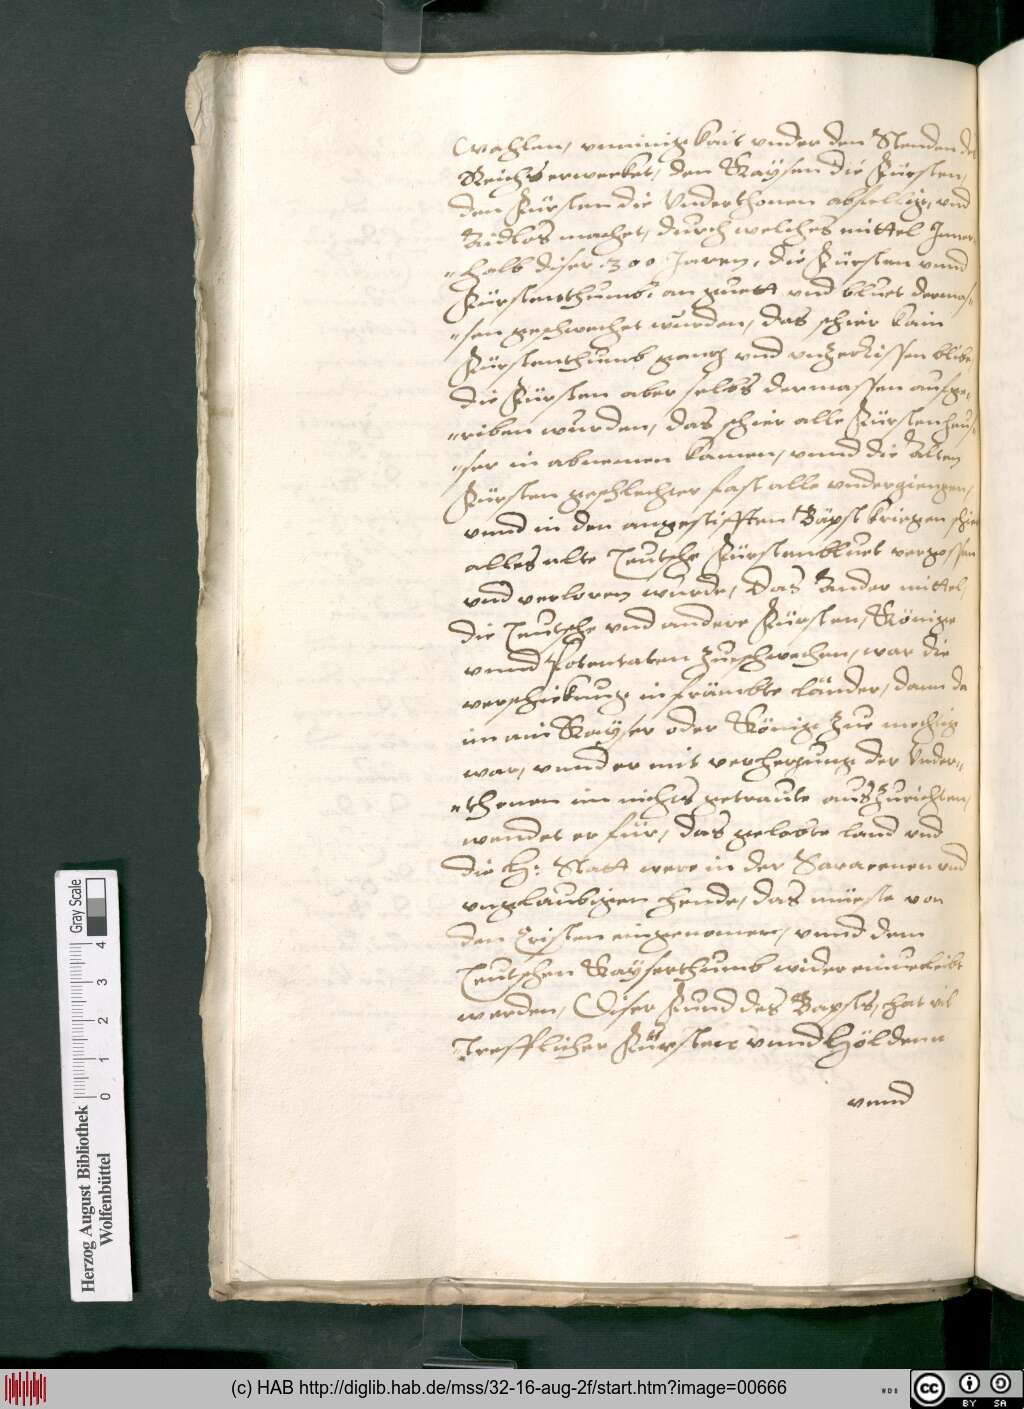 wahlen, vnainigkait vnder den Stenden des
Reichs erwecket, den Kaysern die Fürsten,
den Fürsten die Vnderthonen abfellig, vnd
Aidlos machet, durch welches mittel Inner-
halb diser 300 Jaren, die Fürsten vnnd
Fürstenthumb, an guett vnd bluet dermas-
sen geschwechet wurden, das schier kain
Fürstenthumb gantz vnd vnzerrissen blibe
die Fürsten aber selbs dermassen aufge-
riben wurden, das schier alle Fürstenheus-
ser in abnemen kamen, vnnd die Alten
Fürsten geschlechter fast alle vndergiengen,
vnnd in den angestifften Bäpst kriegen schier
alles alte Teutsche Fürstenbluet vergossen
vnd verloren wurde, Das Ander mittel,
die Teutsche vnd andere Fürsten, Könige
vnnd Potentaten zueschwechen, war die
verschickung in främbte länder, dann da
im ain Kayser oder König zue mechtig
war, vnnd er mit verhetzung der Vnder-
thonen im nichts getraute auszurichten,
wendet er für, das gelobte land vnd
die H: Statt were in der Saracenen vnd
vnglaubigen hende, das müeste von
den Cristen eingenomen, vnnd dem
Teutschen Kayserthumb wider einuerleibt
werden, Diser Fund des Bapsts, hat vil
trefflicher Fürsten vnnd Höldenn
vnnd
Herzog August Bibliothek
Wolfenbüttel
0 1 2 3 4
Gray Scale
(c) HAB http://diglib.hab.de/mss/32-16-aug-2f/start.htm?image=00666
WDB
cc BY SA